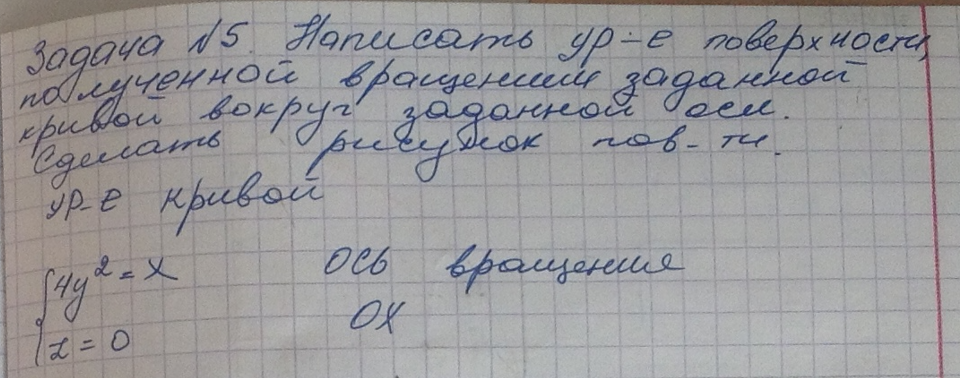 Задача №5. Написать ур-е поверхности,
полученной вращением заданной
кривой вокруг заданной оси.
Сделать рисунок пов-ти.
ур-е кривой
{4y² = x ось вращения
z = 0 OX